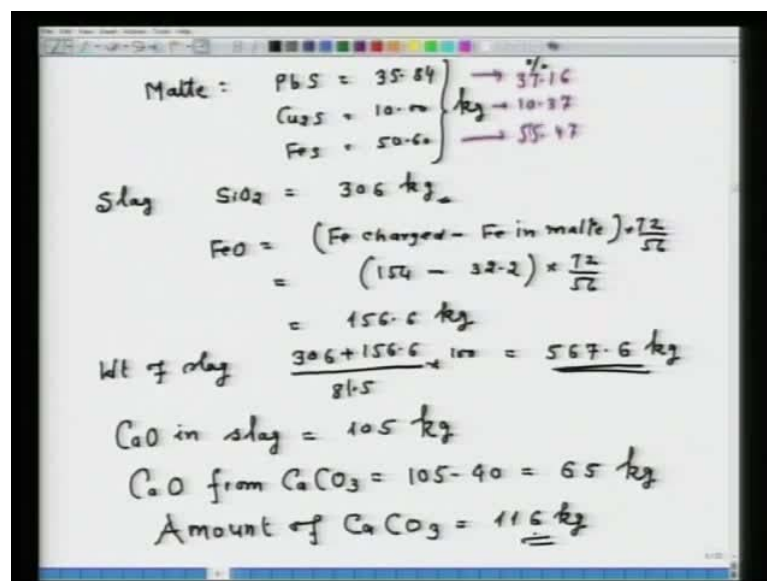 %
Matte : PbS = 35.84 → 37.16
Cu2S = 10.00 kg → 10.37
FeS = 50.60 → 55.47
Slag SiO2 = 306 kg.
FeO = (Fe charged - Fe in matte) * 72/56
= (154 - 32.2) * 72/56
= 156.6 kg
Wt of slag (306+156.6)/81.5 * 100 = 567.6 kg
CaO in slag = 105 kg
CaO from CaCO3 = 105-40 = 65 kg
Amount of CaCO3 = 116 kg